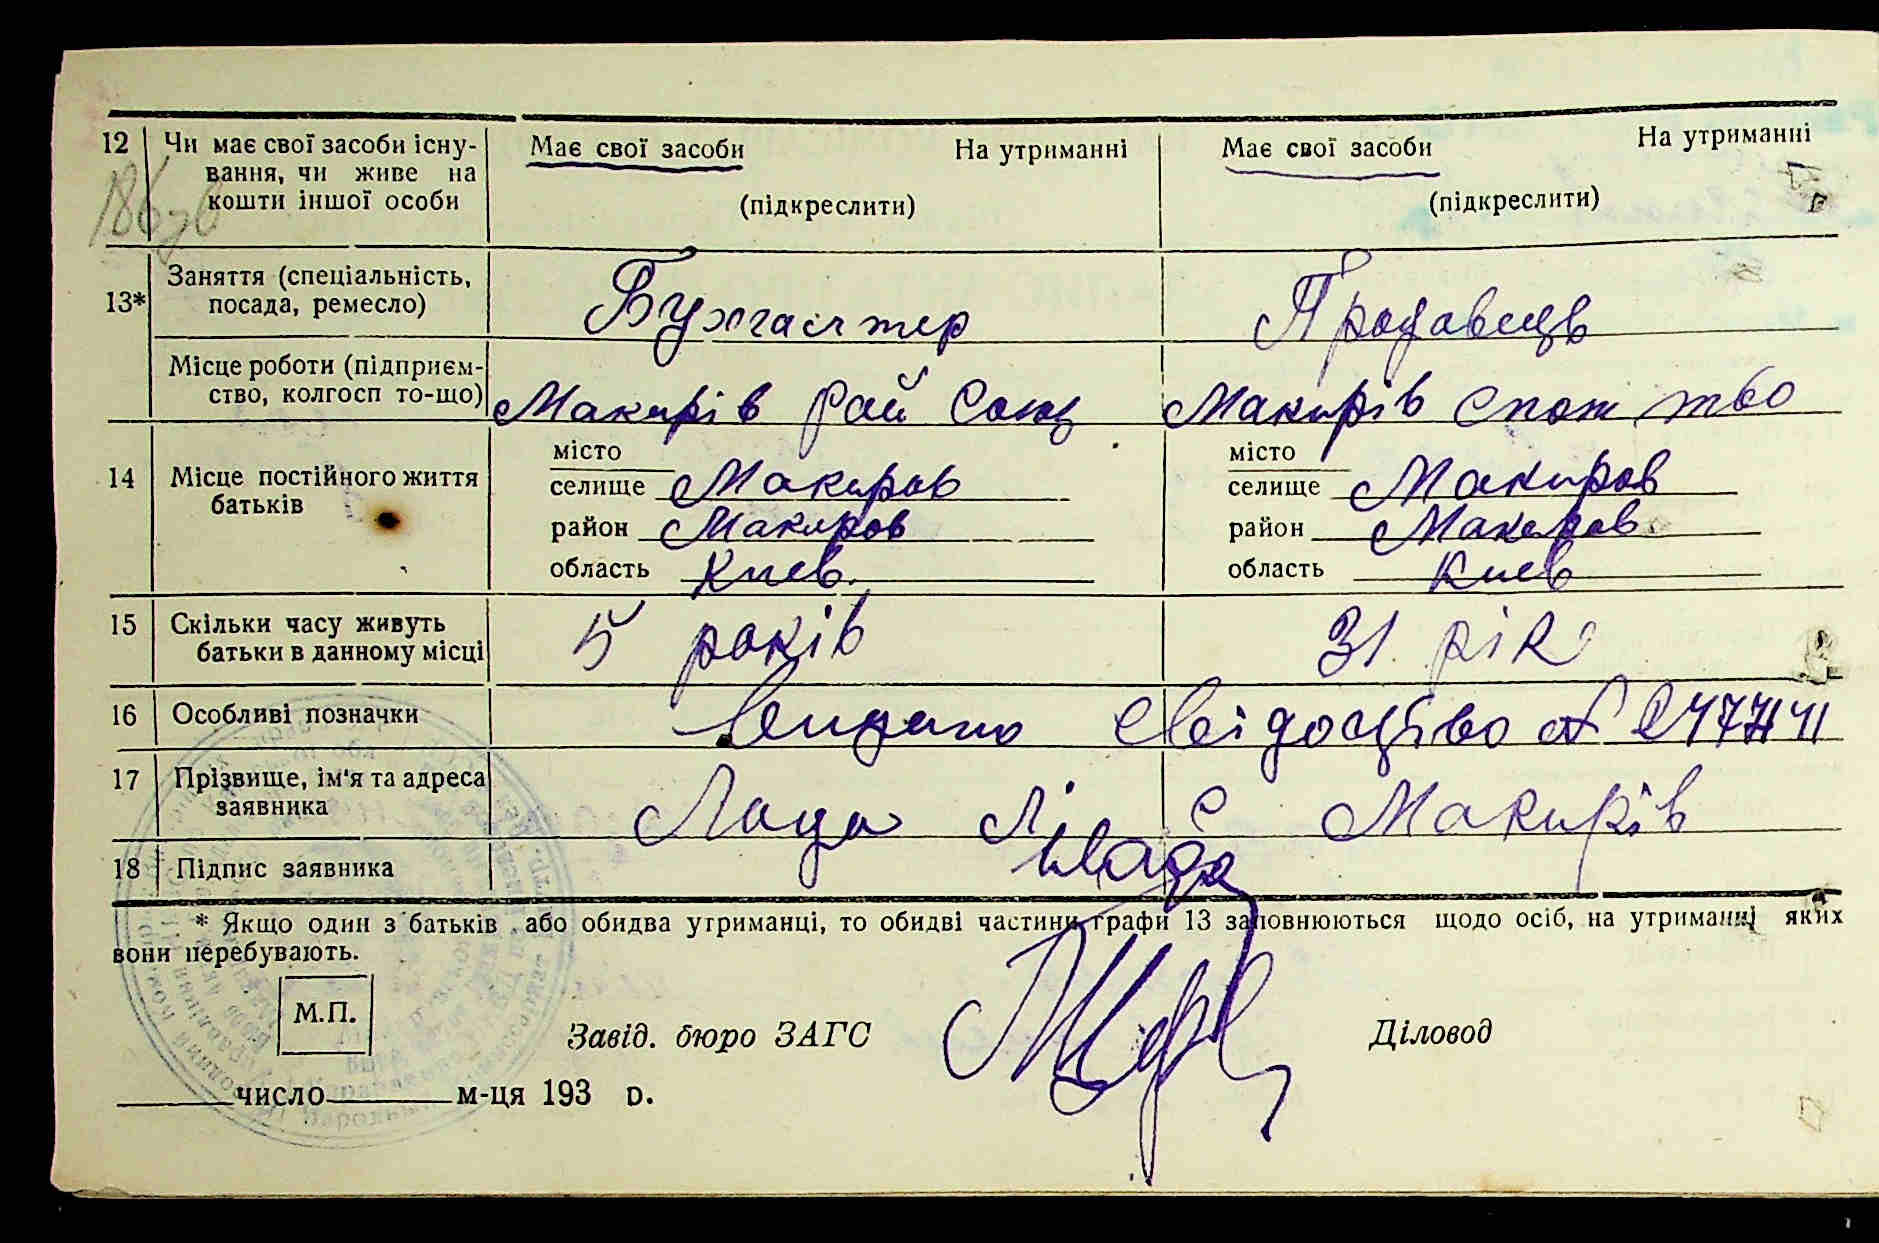 12 Чи має свої засоби існу- Має свої засоби На утриманні Має свої засоби На утриманні
вання, чи живе на
кошти іншої особи (підкреслити) (підкреслити)
13* Заняття (спеціальність,
посада, ремесло) Бухгалтер Продавець
Місце роботи (підприєм-
ство, колгосп то-що) Макирів Рай Союз Макирів Спож тво
14 Місце постійного життя
батьків
місто місто
селище Макаров селище Макаров
район Макаров район Макаров
область Киев. область Киев
15 Скільки часу живуть
батьки в данному місці 5 років 31 рік
16 Особливі позначки Видано Свідоцтво №
17 Прізвище, ім'я та адреса
заявника Лада Л С Макирів
18 Підпис заявника Лада
* Якщо один з батьків або обидва утриманці, то обидві частини графи 13 заповнюються щодо осіб, на утриманні яких
вони перебувають.
М.П.
Завід. бюро ЗАГС Діловод
число м-ця 193 р.